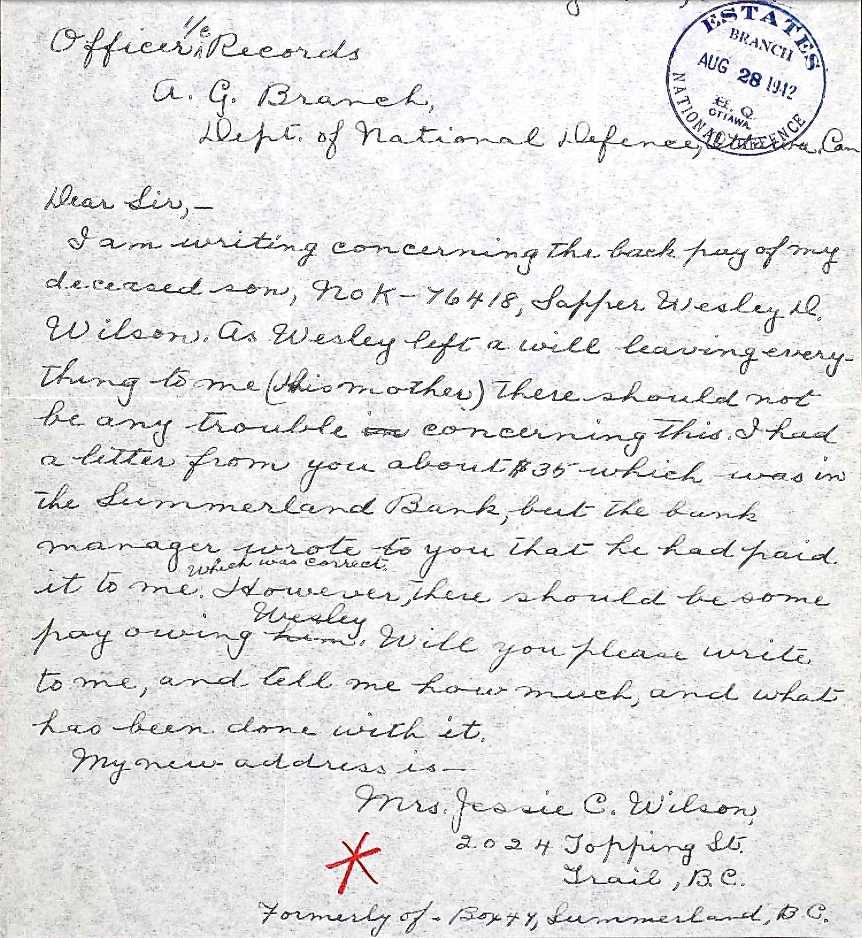 Officer i/c Records
A. G. Branch,
Dept. of National Defence, Ottawa, Can
ESTATES
BRANCH
AUG 28 1942
H. Q.
OTTAWA
NATIONAL DEFENCE
Dear Sir,—
I am writing concerning the back pay of my
deceased son, No K-76418, Sapper Wesley D.
Wilson. As Wesley left a will leaving every-
thing to me (his mother) there should not
be any trouble in concerning this. I had
a letter from you about $35 which was in
the Summerland Bank, but the bank
manager wrote to you that he had paid
it to me, which was correct. However, there should be some
pay owing him Wesley. Will you please write
to me, and tell me how much, and what
has been done with it.
My new address is—
Mrs. Jessie C. Wilson,
2024 Topping St.
Trail, B.C.
Formerly of - Box 44, Summerland, B.C.